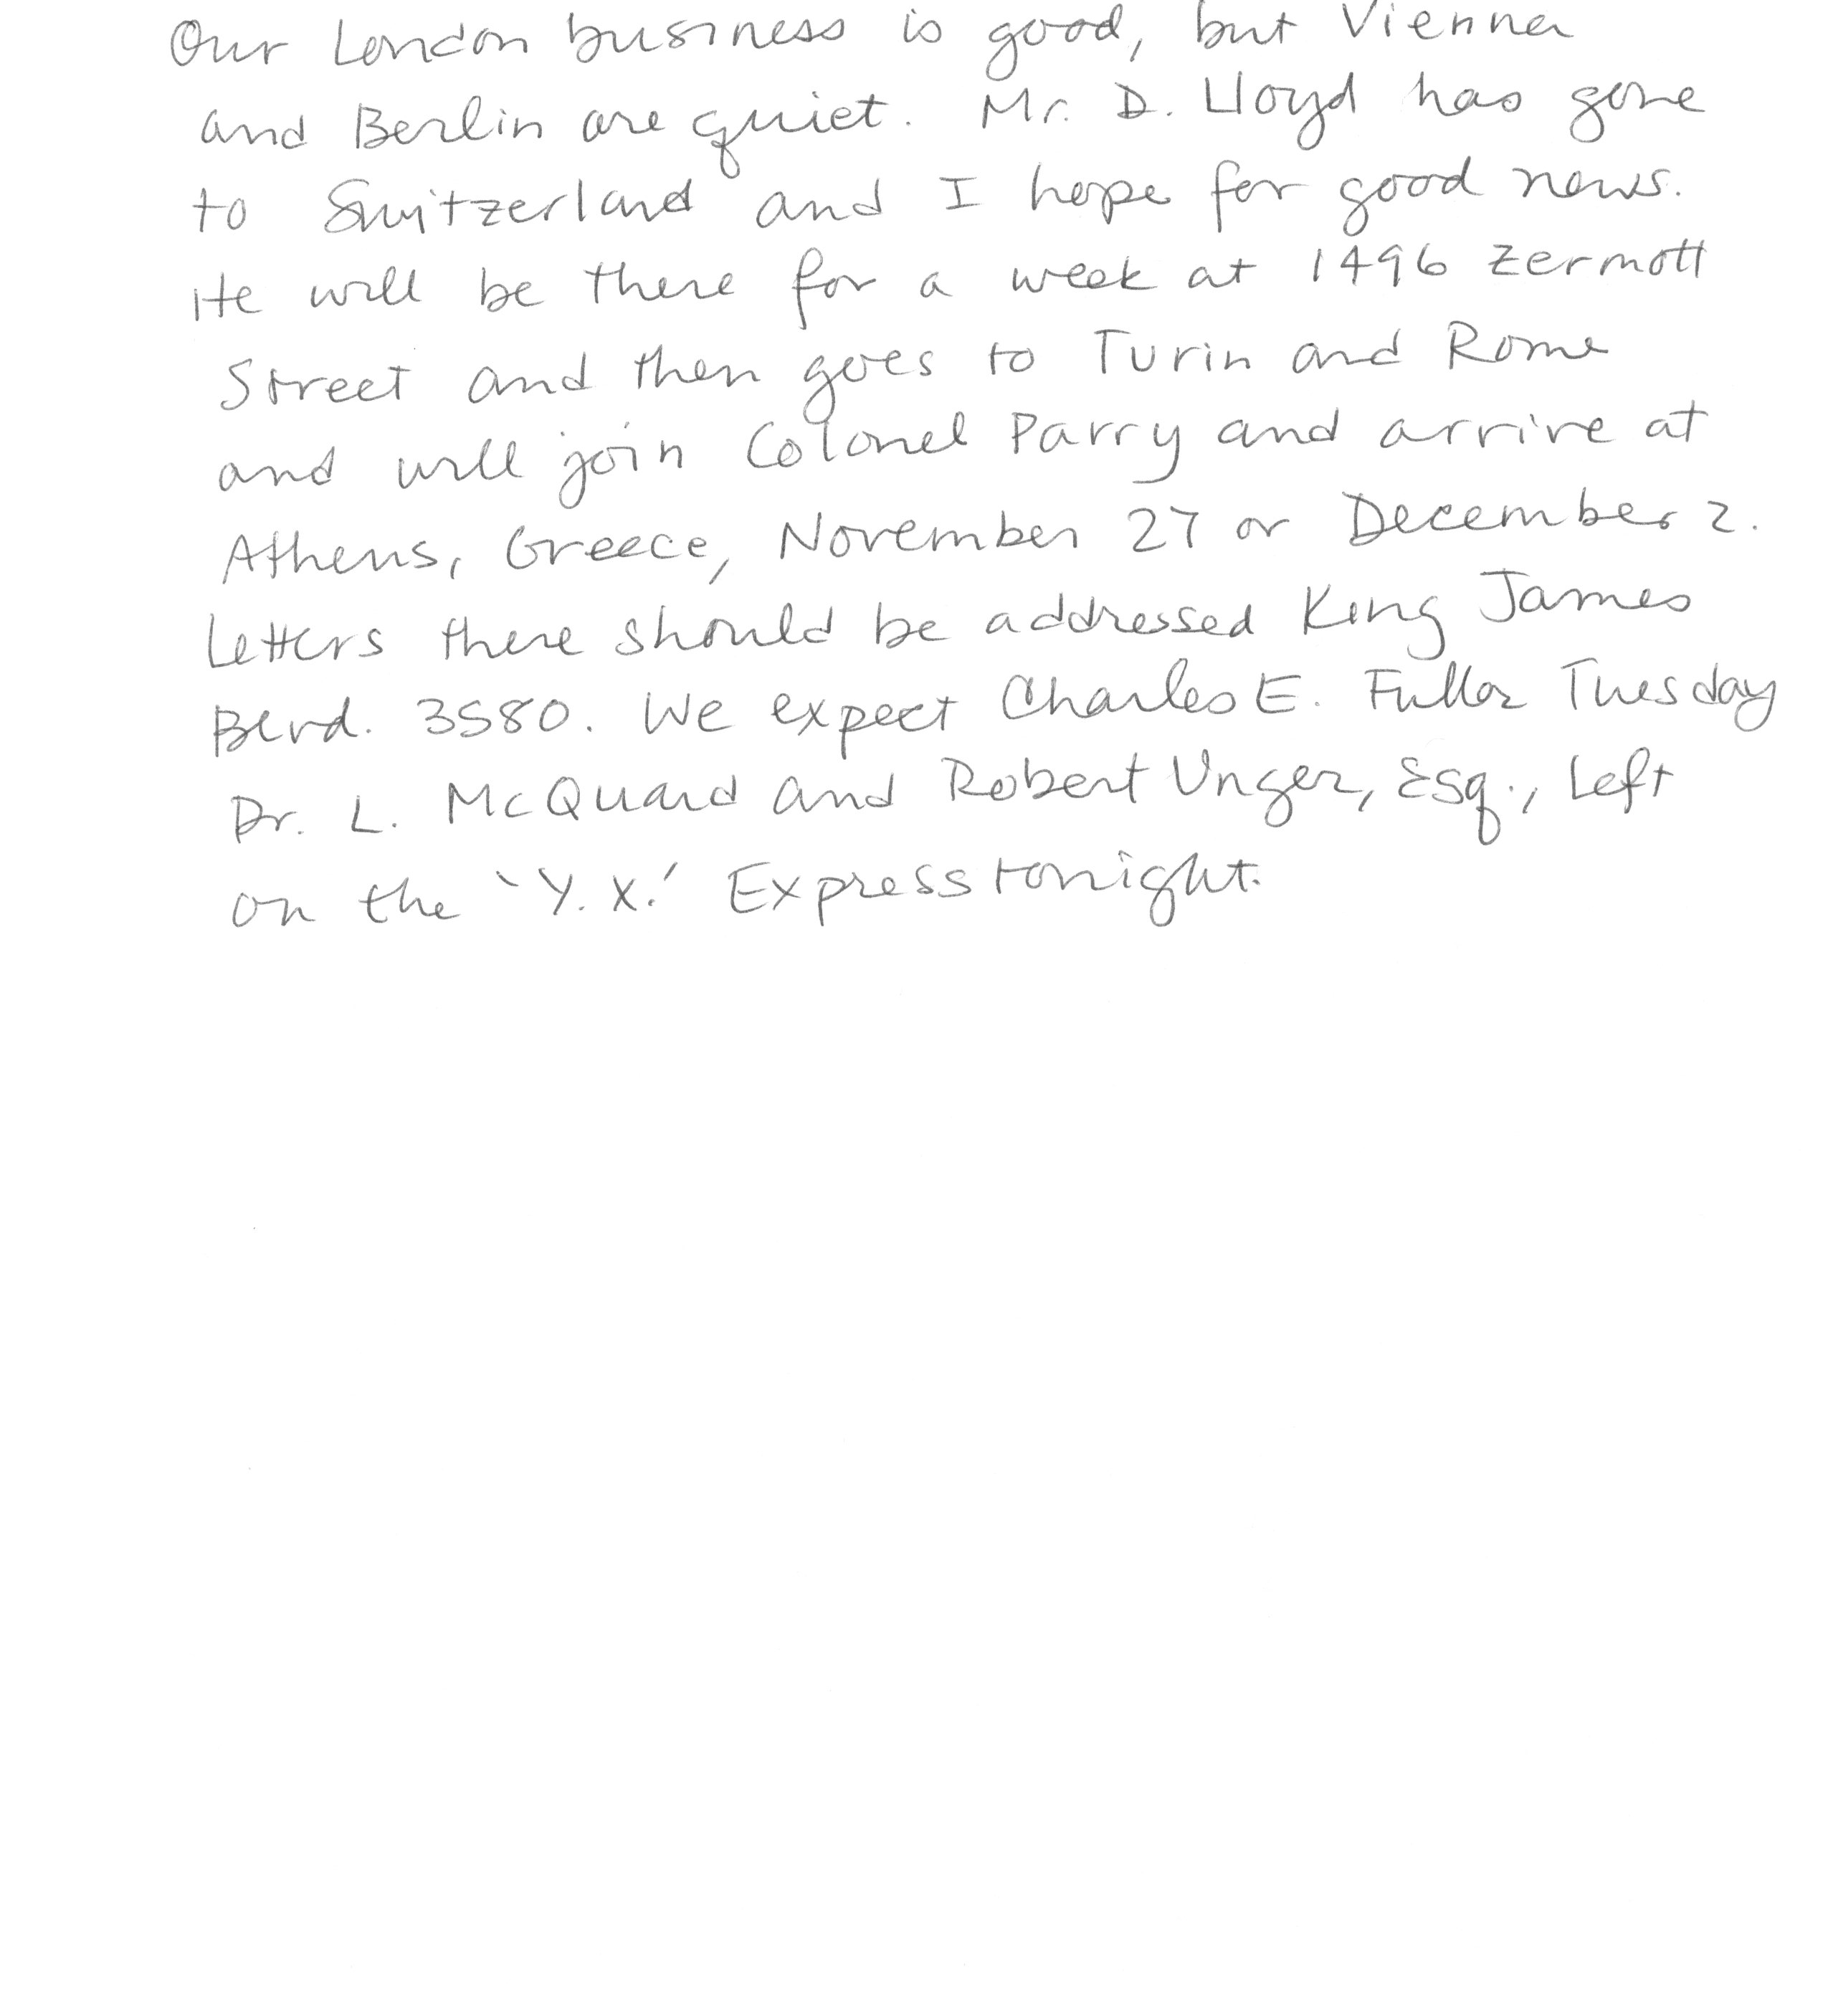 Our London business is good, but Vienna
and Berlin are quiet. Mr. D. Lloyd has gone
to Switzerland and I hope for good news.
He will be there for a week at 1496 Zermott
Street and then goes to Turin and Rome
and will join Colonel Parry and arrive at
Athens, Greece, November 27 or December 2.
Letters there should be addressed King James
Blvd. 3580. We expect Charles E. Fuller Tuesday
Dr. L. McQuaid and Robert Unger, Esq., left
on the 'Y.X.' Express tonight.